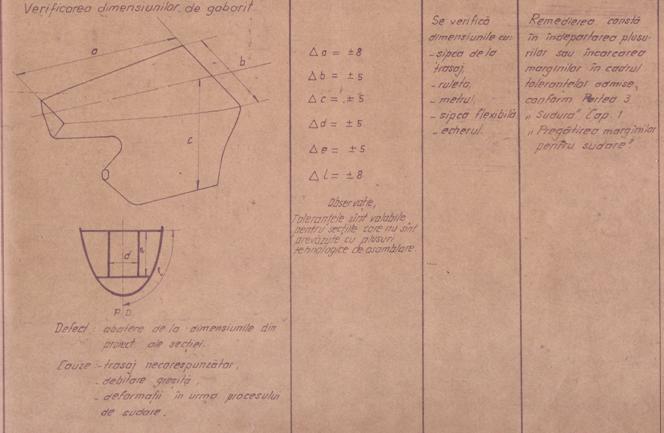 Verificarea dimensiunilor de gabarit.
a
b
c
d
e
l
P. D.
Defect: abatere de la dimensiunile din
proiect ale secției.
Cauze: -trasaj necorespunzător,
- debitare greșită,
- deformații în urma procesului
de sudare.
Δ a = ±8
Δ b = ±5
Δ c = ±5
Δ d = ±5
Δ e = ±5
Δ l = ±8
Observație,
Toleranțele sînt valabile
pentru secțiile care nu sînt
prevăzute cu plusuri
tehnologice de asamblare.
Se verifică
dimensiunile cu:
- șipca de la
trasaj,
- ruleta,
- metrul,
- șipca flexibilă
- echerul.
Remedierea constă
în îndepărtarea plusu-
rilor sau încărcarea
marginilor în cadrul
toleranțelor admise,
conform Partea 3
„Sudura" Cap. 1
„Pregătirea marginilor
pentru sudare"